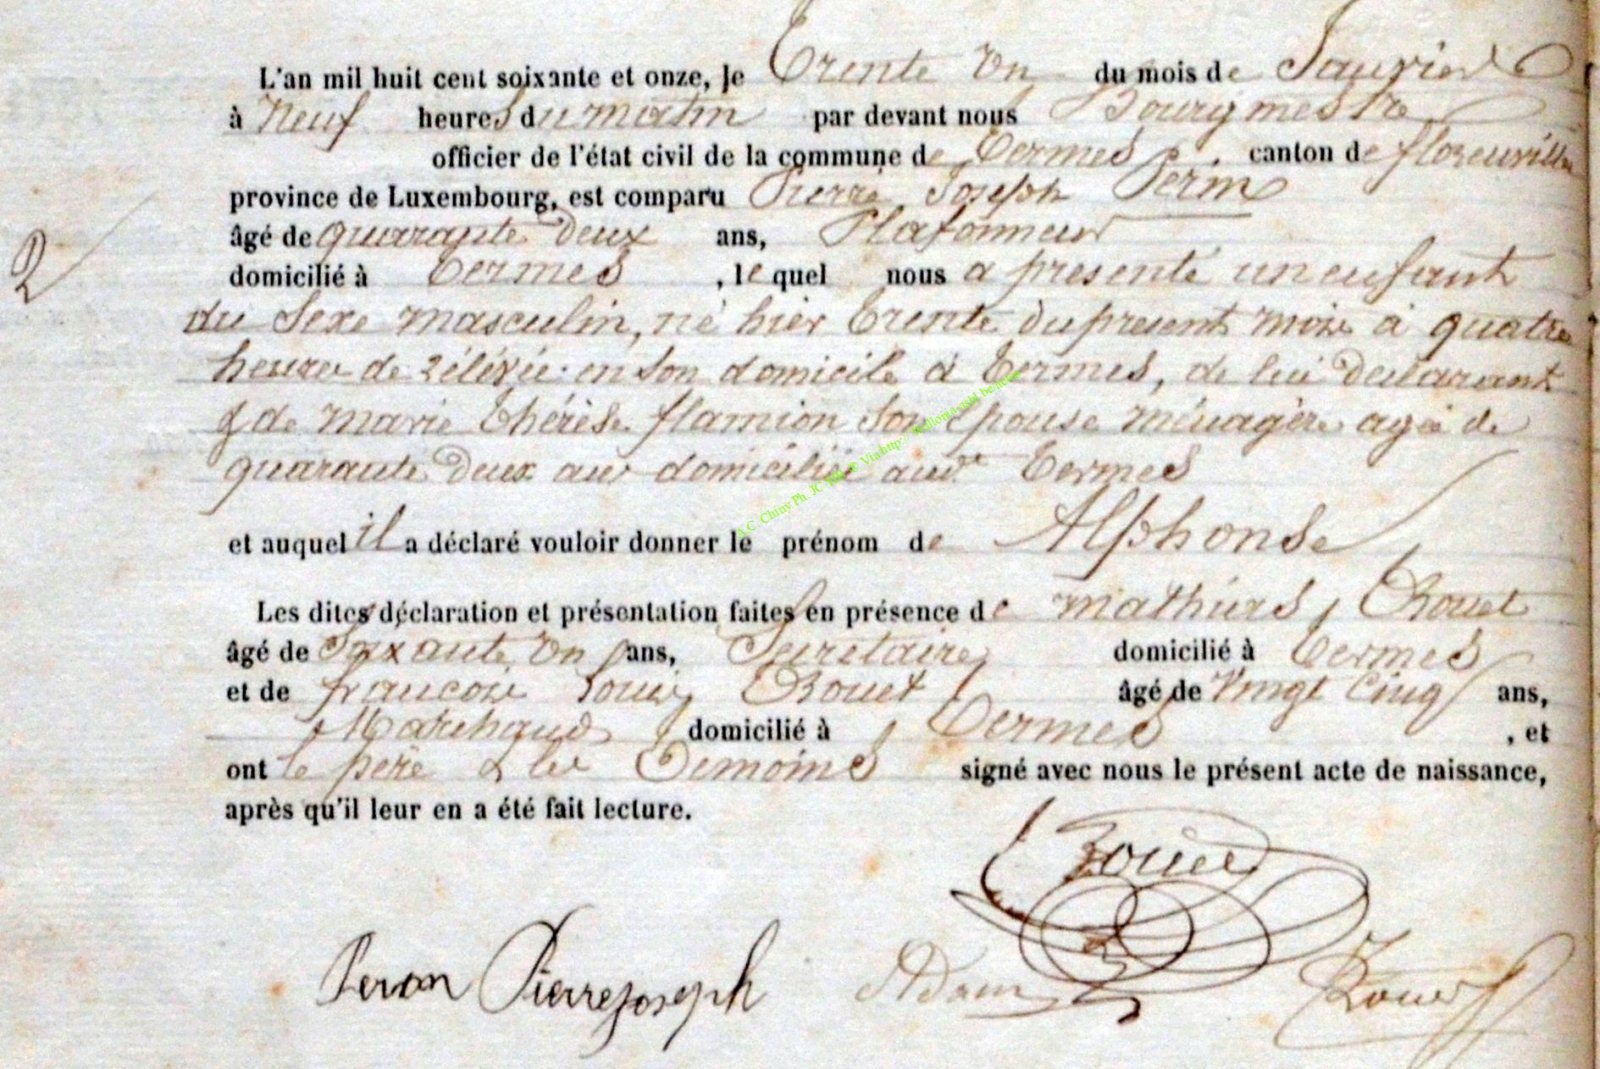 L'an mil huit cent soixante et onze, le Trente Un du mois de Janvier
à Neuf heures du matin par devant nous Bourgmestre
officier de l'état civil de la commune de Termes, canton de florenville
province de Luxembourg, est comparu Pierre Joseph
âgé de quarante Deux ans, Plafonneur
domicilié à Termes, lequel nous a présenté un enfant
2
du Sexe masculin, né hier trente du present mois à quatre
heures de rélévée en son domicile à Termes, de lui déclarant
& de marie thérèse flamion son Épouse ménagère agée de
quarante Deux ans domiciliée aud.t Termes
et auquel il a déclaré vouloir donner le prénom de Alphonse
Les dites déclaration et présentation faites en présence de mathieus Rouet
âgé de Soixante Un ans, Secretaire domicilié à Termes
et de francois Louis Rouet âgé de Vingt Cinq ans,
Marchand domicilié à Termes, et
ont le père & les Temoins signé avec nous le présent acte de naissance,
après qu'il leur en a été fait lecture.
Rouet
Pierrejoseph Adam Rouet
A.C. Chiny Ph. JC